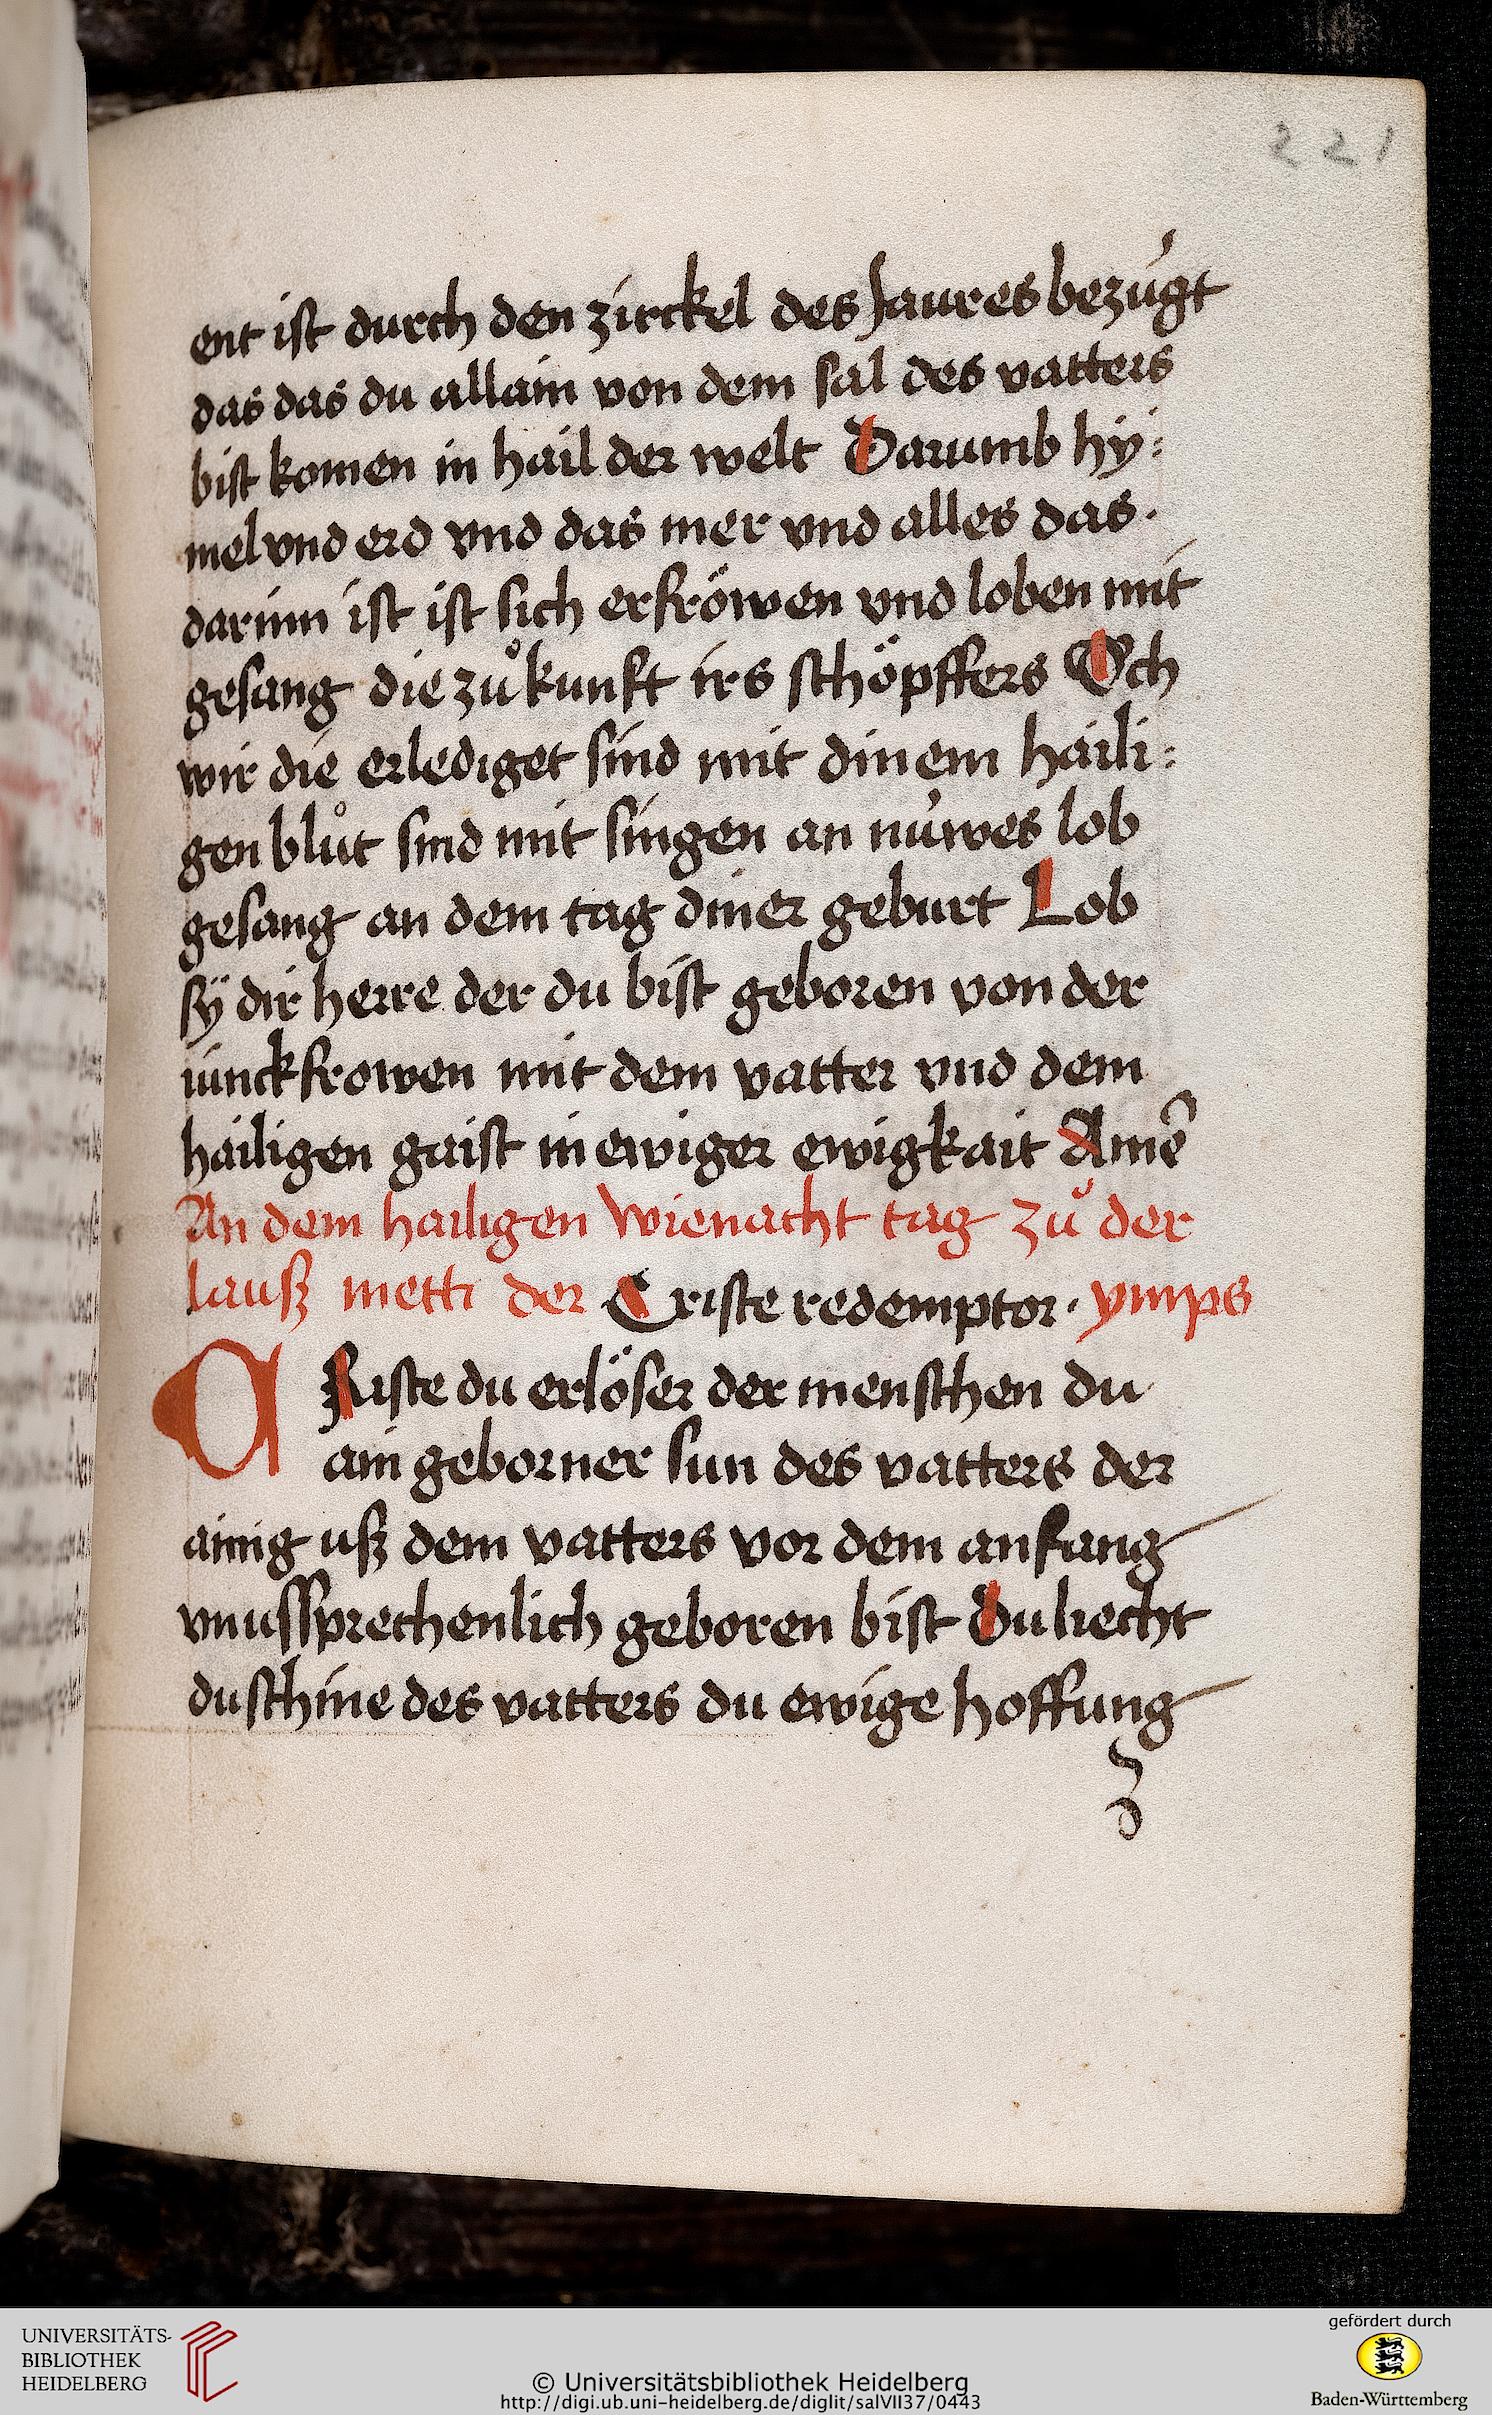 221
ent ist durch den zirckel des Jaures bezúgt
das das du allain von dem sal des vatters
bist komen in hail der welt Darumb hy:
mel vnd erd vnd das mer vnd alles das.
darinn ist ist sich erfröwen vnd loben mit
gesang die zuͦkunft irs schöpffers Och
wir die erlediget sind mit dinem haili:
gen bluͦt sind mit singen an núwes lob
gesang an dem tag diner geburt Lob
sÿ dir herre der du bist geboren von der
iunckfrowen mit dem vatter vnd dem
hailigen gaist in ewiger ewigkait Amē
An dem hailigen wienacht tag zuͦ der
lauß metti der Criste redemptor. ymps
C Riste du erlöser der menschen du
ain geborner sun des vatters der
ainig uß dem vatters vor dem anfang
vnussprechenlich geboren bist du liecht
du schine des vatters du ewige hoffung
UNIVERSITÄTS-
BIBLIOTHEK
HEIDELBERG
© Universitätsbibliothek Heidelberg
http://digi.ub.uni-heidelberg.de/diglit/salVII37/0443
gefördert durch
Baden-Württemberg